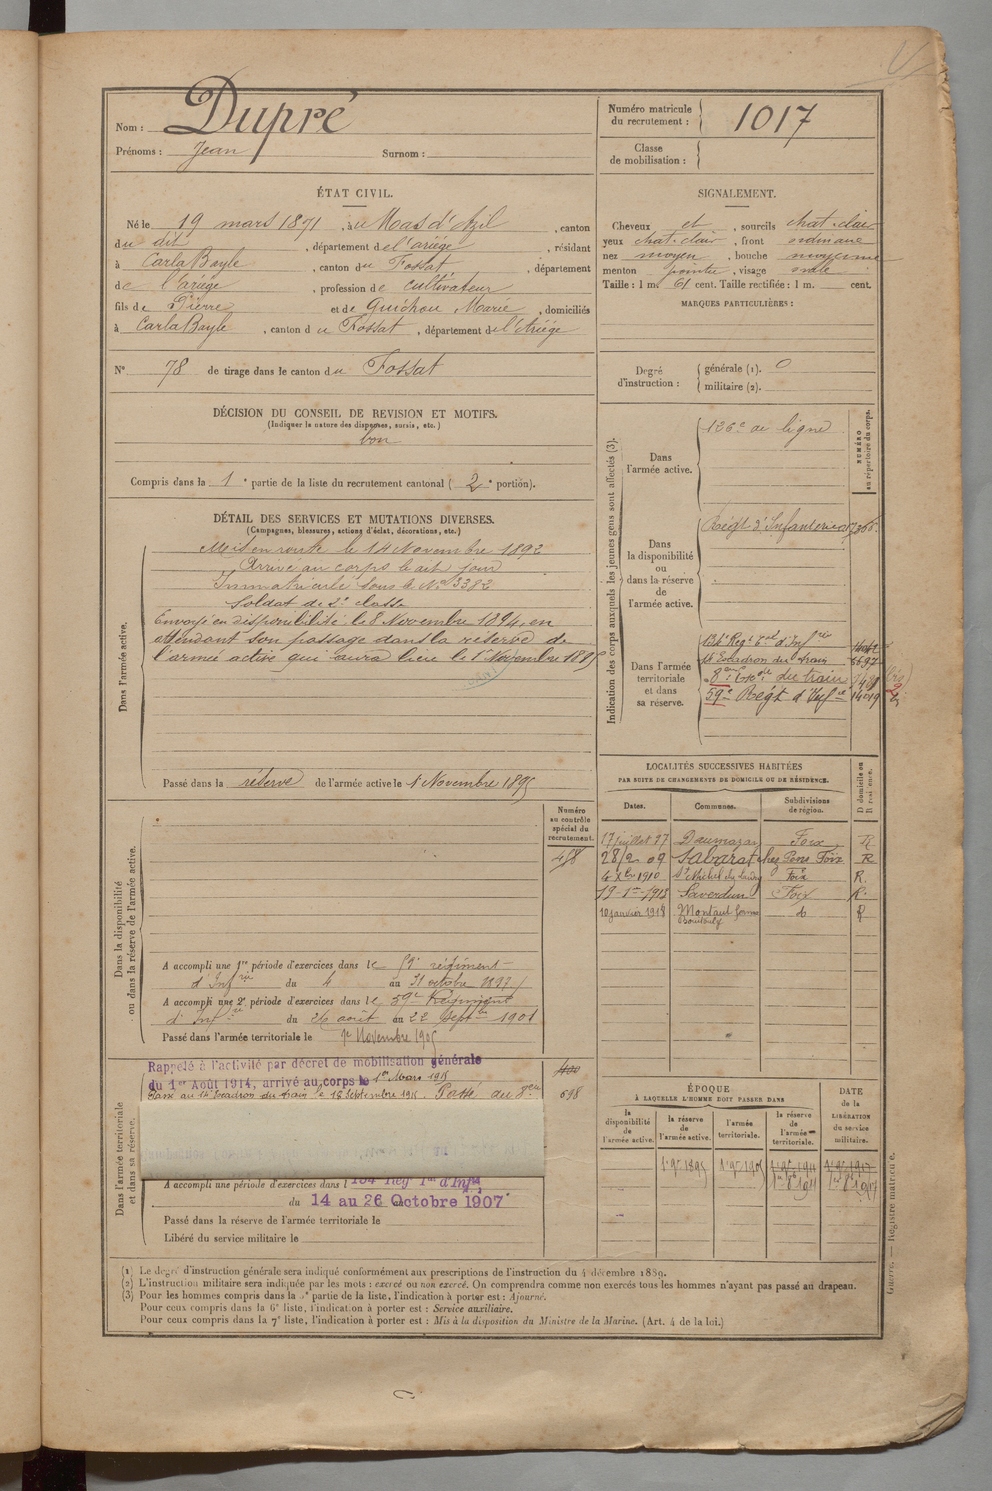 Nom : Dupré
Prénoms : Jean Surnom :
Numéro matricule du recrutement : 1017
Classe de mobilisation :
ÉTAT CIVIL.
Né le 19 mars 1871, à u Mas d'Azil, canton
du dit, département de l'ariége, résidant
à Carla Bayle, canton du Fossat, département
de l'ariége, profession de cultivateur
fils de Pierre et de Guichou Marie, domiciliés
à Carla Bayle, canton du Fossat, département de l'Ariége
N° 78 de tirage dans le canton du Fossat
SIGNALEMENT.
Cheveux et, sourcils chat-clair
yeux chat-clair, front ordinaire
nez moyen, bouche moyenne
menton pointu, visage ovale
Taille : 1 m. 61 cent. Taille rectifiée : 1 m. cent.
MARQUES PARTICULIÈRES :
Degré d'instruction : générale (1). 0
militaire (2).
DÉCISION DU CONSEIL DE REVISION ET MOTIFS.
(Indiquer la nature des dispenses, sursis, etc.)
bon
Compris dans la 1e partie de la liste du recrutement cantonal ( 2e portion).
DÉTAIL DES SERVICES ET MUTATIONS DIVERSES.
(Campagnes, blessures, actions d'éclat, décorations, etc.)
Dans l'armée active.
Mis en route le 14 Novembre 1892
Arrivé au corps le dit jour
Immatriculé sous le No 3382
Soldat de 2e classe
Envoyé en disponibilité le 8 Novembre 1894, en
attendant son passage dans la réserve de
l'armée active qui aura lieu le 1er Novembre 1895
Passé dans la réserve de l'armée active le 1 Novembre 1895
Indication des corps auxquels les jeunes gens sont affectés (3).
NUMÉRO au répertoire du corps.
Dans l'armée active.
126e de ligne
Dans la disponibilité ou dans la réserve de l'armée active.
Régt d'Infanterie
Dans l'armée territoriale et dans sa réserve.
134e Regt Tal d'Infrie
14 Escadron du train
8e Eon du train
59e Régt d'Infie
LOCALITÉS SUCCESSIVES HABITÉES
PAR SUITE DE CHANGEMENTS DE DOMICILE OU DE RÉSIDENCE.
Dates. Communes. Subdivisions de région. D domicile ou R résidence.
17 juillet 97 Daumazan Foix R
28/2 09 Sabarat Foix R
1910 Foix R.
19-1-1913 Saverdun Foix R.
10 janvier 1918 Montaut do R
Dans la disponibilité ou dans la réserve de l'armée active.
Numéro au contrôle spécial du recrutement.
A accompli une 1re période d'exercices dans le 59e régiment
d'Infrie du 4 au 31 octobre 1897
A accompli une 2e période d'exercices dans le 59e Régiment
d'Infie du 26 août au 22 Septbre 1901
Passé dans l'armée territoriale le 1er Novembre 1905
Dans l'armée territoriale et dans sa réserve.
Rappelé à l'activité par décret de mobilisation générale
du 1er Août 1914, arrivé au corps le 1er Mars 1915
Passé au 14e Escadron du train le 16 Septembre 1915. Passé au 8e
698
A accompli une période d'exercices dans l 134 Reg Tal d'Infie,
du 14 au 26 Octobre 1907
Passé dans la réserve de l'armée territoriale le
Libéré du service militaire le
ÉPOQUE
À LAQUELLE L'HOMME DOIT PASSER DANS
la disponibilité de l'armée active.
la réserve de l'armée active.
l'armée territoriale.
la réserve de l'armée territoriale.
DATE de la LIBÉRATION du service militaire.
1er 9bre 1895 1er 9bre 1905
Guerre. — Registre matricule.
(1) Le degré d'instruction générale sera indiqué conformément aux prescriptions de l'instruction du 4 décembre 1889.
(2) L'instruction militaire sera indiquée par les mots : exercé ou non exercé. On comprendra comme non exercés tous les hommes n'ayant pas passé au drapeau.
(3) Pour les hommes compris dans la 5e partie de la liste, l'indication à porter est : Ajourné.
Pour ceux compris dans la 6e liste, l'indication à porter est : Service auxiliaire.
Pour ceux compris dans la 7e liste, l'indication à porter est : Mis à la disposition du Ministre de la Marine. (Art. 4 de la loi.)